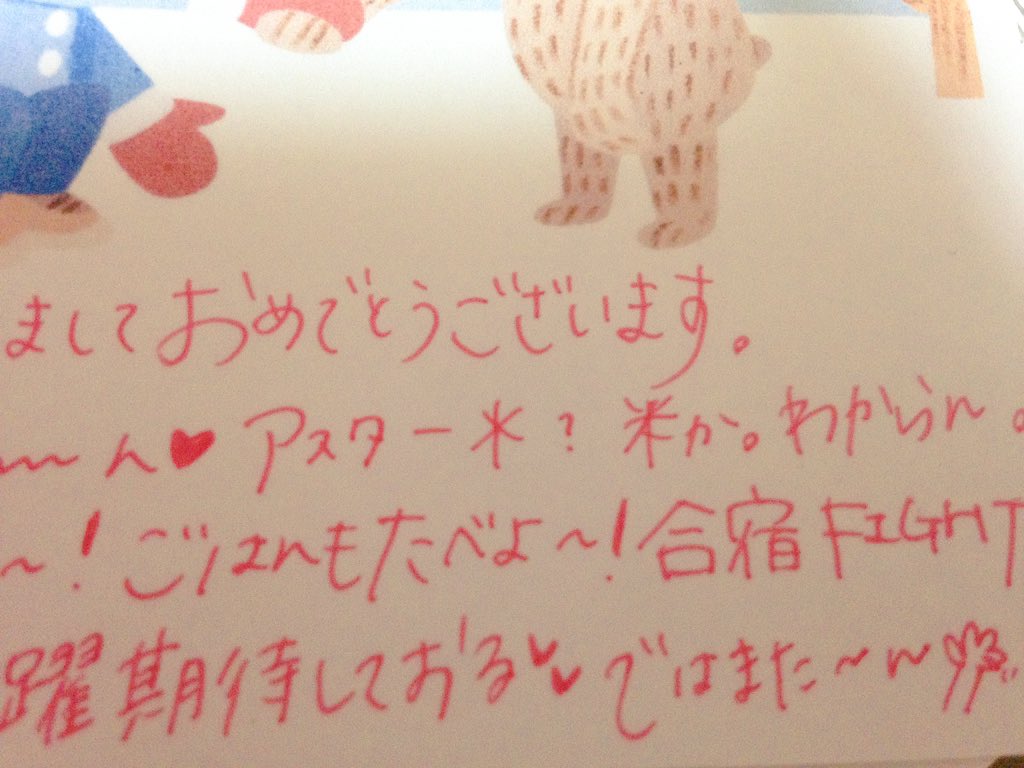 ましておめでとうございます。
~~ん♥アスター米?米か。わからん。
~!ごはんもたべよ~!合宿FIGHT
躍期待しておる♥♥ではまた~~